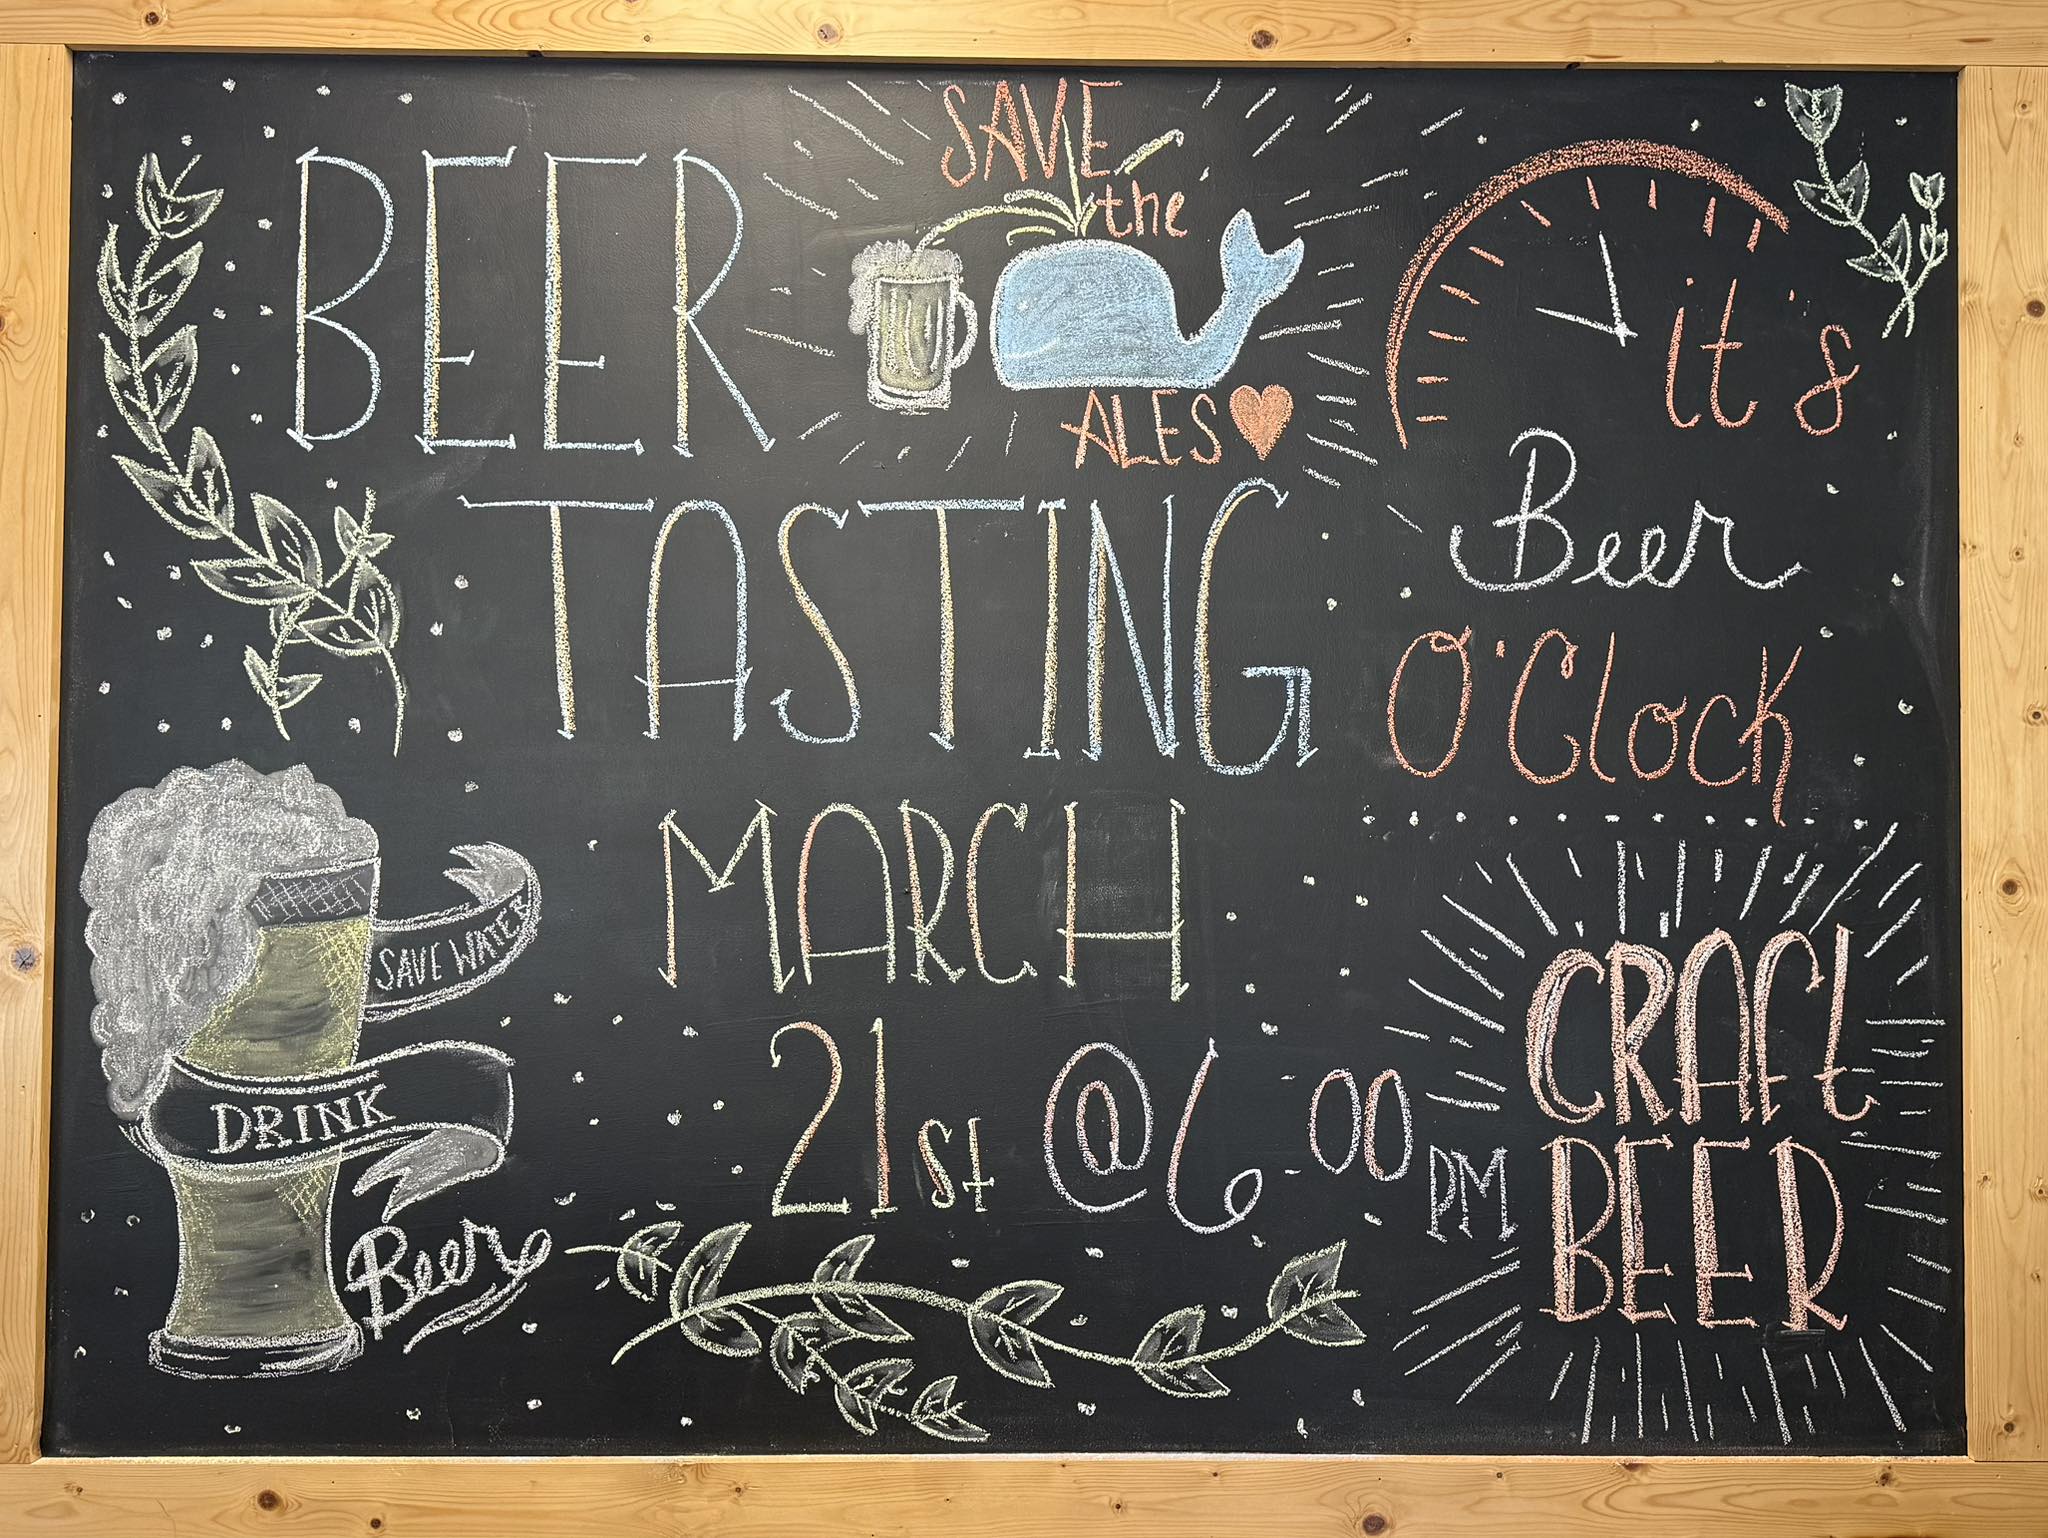 BEER
TASTING
MARCH
21st @ 6-00
PM
SAVE
the
ALES
it's
Beer
O'Clock
SAVE WATER
DRINK
Beer
CRAFt
BEER